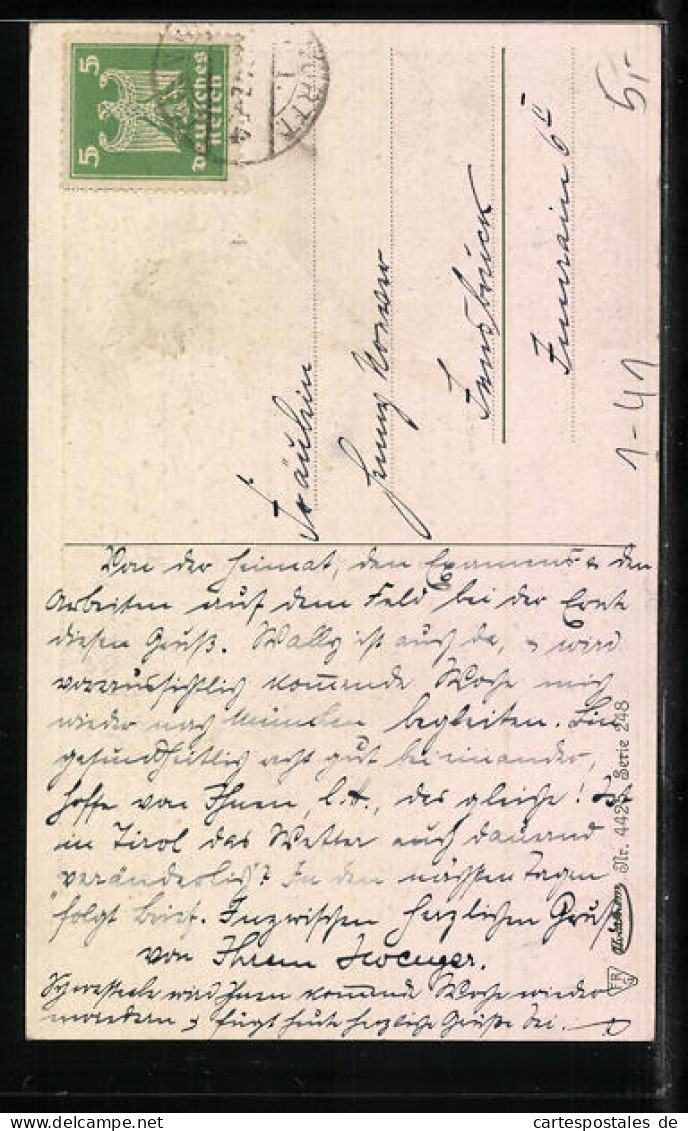 5 5
Deutsches
Reich
5,-
Fräulein
Innsbruck
Innrain 6
1-41
Von der Heimat, den Examens & den
Arbeiten auf dem Feld bei der Ernte
diesen Gruß. Wally ist auch da, & wird
voraussichtlich kommende Woche mich
wieder nach München begleiten. Bin
gesundheitlich recht gut beieinander,
hoffe von Ihnen, l. H., des gleiche! Ist
in Tirol das Wetter auch dauernd
veränderlich? In den nächsten Tagen
folgt Brief. Inzwischen herzlichen Gruß
von Ihrem
wird Ihnen kommende Woche wieder
& fügt heute herzliche Grüße bei.
Nr. 4425 Serie 248
FR
cartespostales.de
www.cartespostales.de